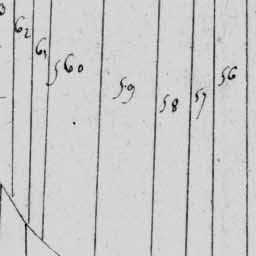 62
61
60
59
58
57
56